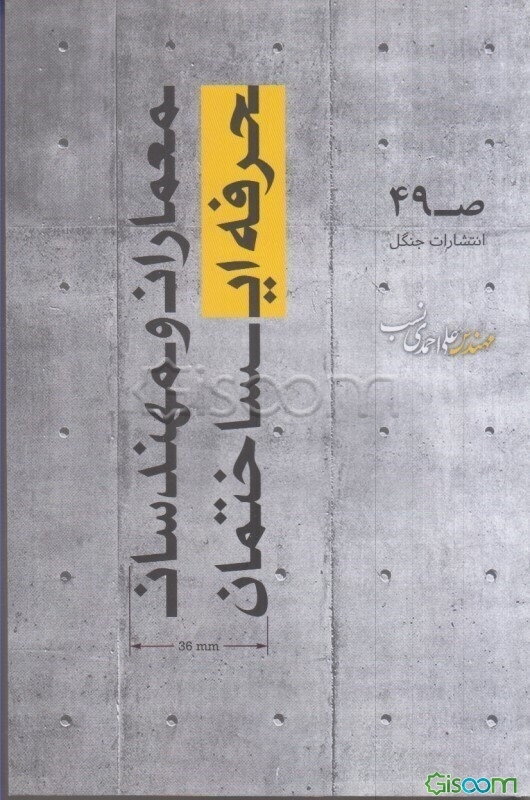 معماران و مهندسان
حرفه‌ای ساختمان
صـ ۴۹
انتشارات جنگل
مهندس علی احمدی نسب
36 mm
Gisoom
Gisoom